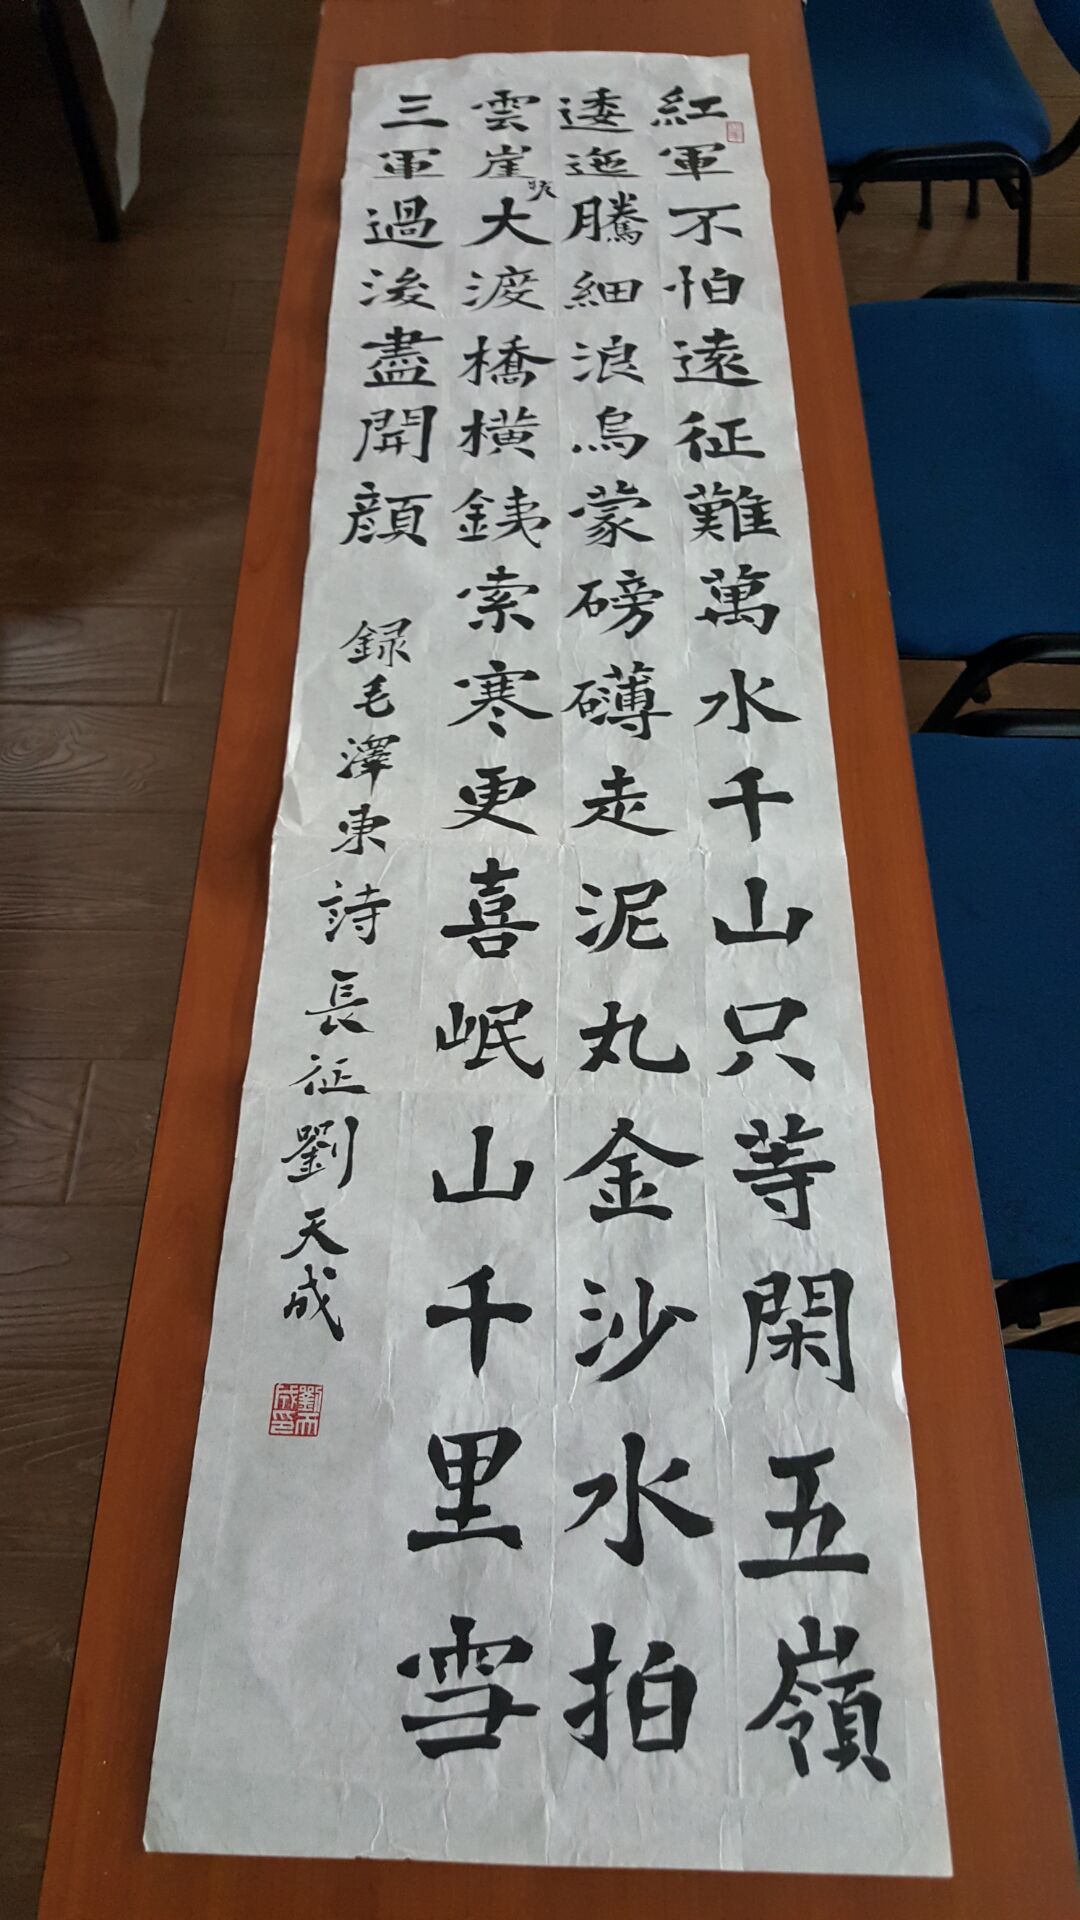 紅軍不怕遠征難萬水千山只等閑五嶺
逶迤騰細浪烏蒙磅礴走泥丸金沙水拍
雲崖暖大渡橋橫銕索寒更喜岷山千里雪
三軍過後盡開顏
録毛澤東詩長征劉天成
劉天成印